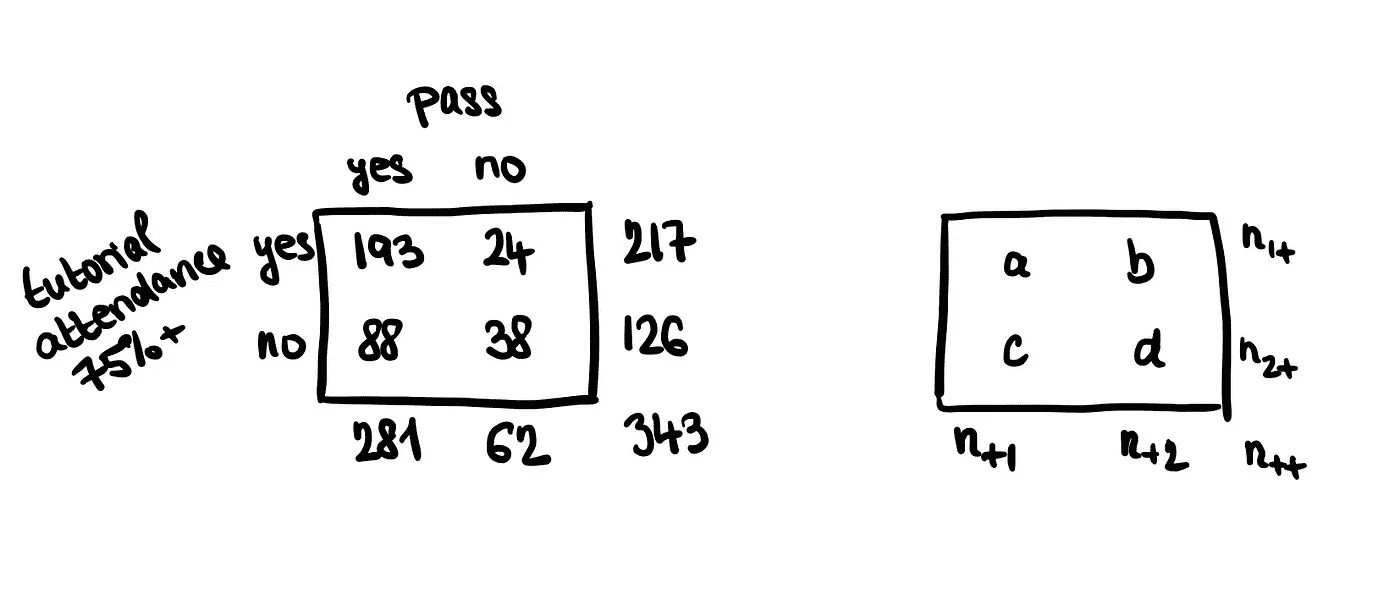 pass
yes no
tutorial attendance 75%+
yes 193 24 217
no 88 38 126
281 62 343
a b n1+
c d n2+
n+1 n+2 n++